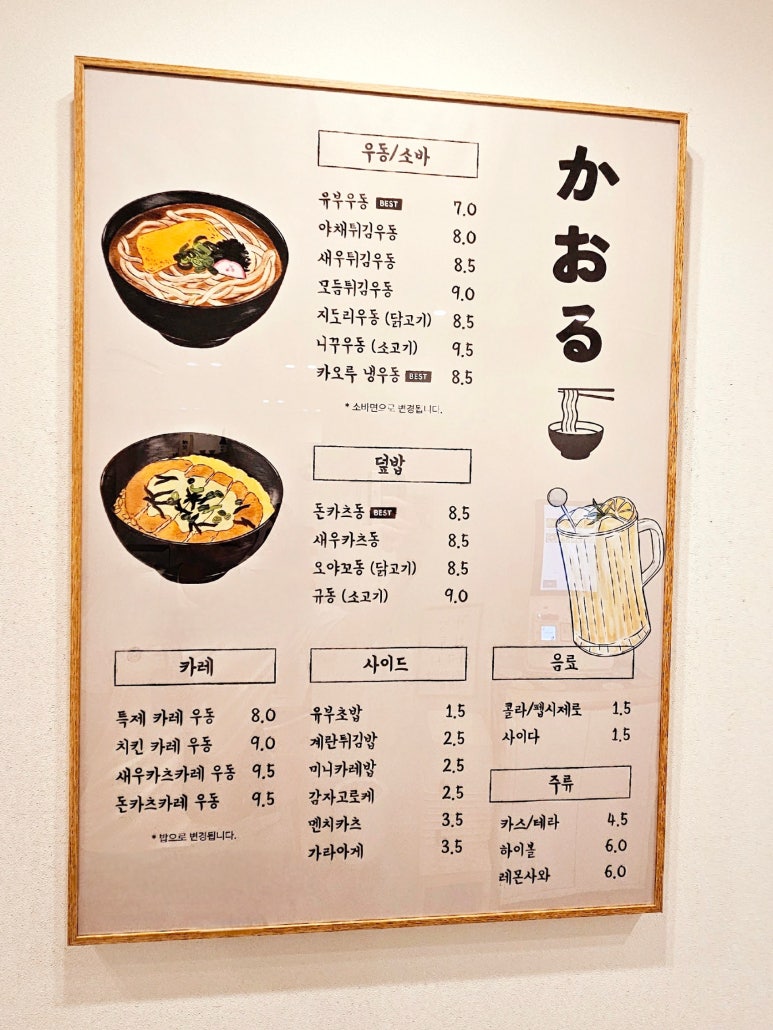 かおる
우동/소바
유부우동 BEST 7.0
야채튀김우동 8.0
새우튀김우동 8.5
모듬튀김우동 9.0
지도리우동 (닭고기) 8.5
니꾸우동 (소고기) 9.5
카오루 냉우동 BEST 8.5
* 소바면으로 변경됩니다.
덮밥
돈카츠동 BEST 8.5
새우카츠동 8.5
오야꼬동 (닭고기) 8.5
규동 (소고기) 9.0
카레
특제 카레 우동 8.0
치킨 카레 우동 9.0
새우카츠카레 우동 9.5
돈카츠카레 우동 9.5
* 밥으로 변경됩니다.
사이드
유부초밥 1.5
계란튀김밥 2.5
미니카레밥 2.5
감자고로케 2.5
멘치카츠 3.5
가라아게 3.5
음료
콜라/펩시제로 1.5
사이다 1.5
주류
카스/테라 4.5
하이볼 6.0
레몬사와 6.0